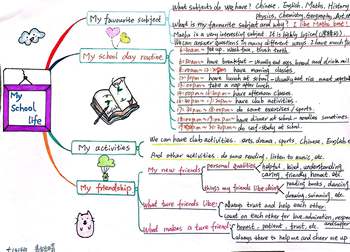 My School life
My favourite subject
What subjects do we have? Chinese, English, Maths, History
Physics, Chemistry, Geography, Art
What is my favourite subject and why? I like Maths
Maths is a very interesting subject. It is highly logical
We can answer questions in many different ways. I have much fun
My school day routine
get up, wash face, brush teeth
have breakfast — usually eat eggs, bread and drink milk
have morning classes
have lunch at school — usually eat rice, meat
take a nap after lunch
have afternoon classes
have club activities
do some exercises / sports
have dinner at school — noodles sometimes
do self-study at school
My activities
We can have club activities: arts, drama, sports, Chinese, English
And other activities: do some reading, listen to music, etc.
My friendship
My new friends
personal qualities
helpful, kind, understanding
caring, friendly, honest, etc.
things my friends like doing
reading books, dancing
drawing, swimming
What ture friends like:
Always trust and help each other
count on each other for love, admiration, respect
What makes a ture friend:
honest, patient, trust, etc.
always there to help and cheer me up